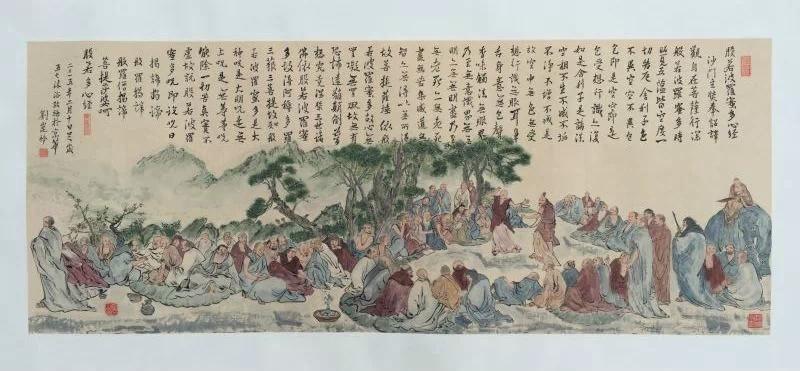 般若波羅蜜多心經
沙门玄奘奉詔譯
觀自在菩薩行深
般若波羅蜜多時
照見五蘊皆空度一
切苦厄舍利子色
不異空空不異色
色即是空空即是
色受想行識亦復
如是舍利子是諸法
空相不生不滅不垢
不淨不增不減是
故空中無色無受
想行識無眼耳鼻
舌身意無色聲
香味觸法無眼界
乃至無意識界無無
明亦無無明盡乃至
無老死亦無老死
盡無苦集滅道無
智亦無得以無所得
故菩提薩埵依般
若波羅蜜多故心無
罣礙無罣礙故無有
恐怖遠離顛倒夢
想究竟涅槃三世諸
佛依般若波羅蜜
多故得阿耨多羅
三藐三菩提故知般
若波羅蜜多是大
神咒是大明咒是無
上咒是無等等咒
能除一切苦真實不
虛故說般若波羅
蜜多咒即說咒曰
揭諦揭諦
般羅揭諦
般羅僧揭諦
菩提莎婆呵
般若多心經
二〇一五年二月十日
劉